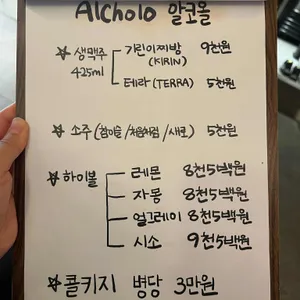 Alcholo 알코올
☆ 생맥주 기린이찌방 9천원
425ml (KIRIN)
테라 (TERRA) 5천원
☆ 소주 (참이슬/처음처럼/새로) 5천원
☆ 하이볼 레몬 8천5백원
자몽 8천5백원
얼그레이 8천5백원
시소 9천5백원
☆ 콜키지 병당 3만원